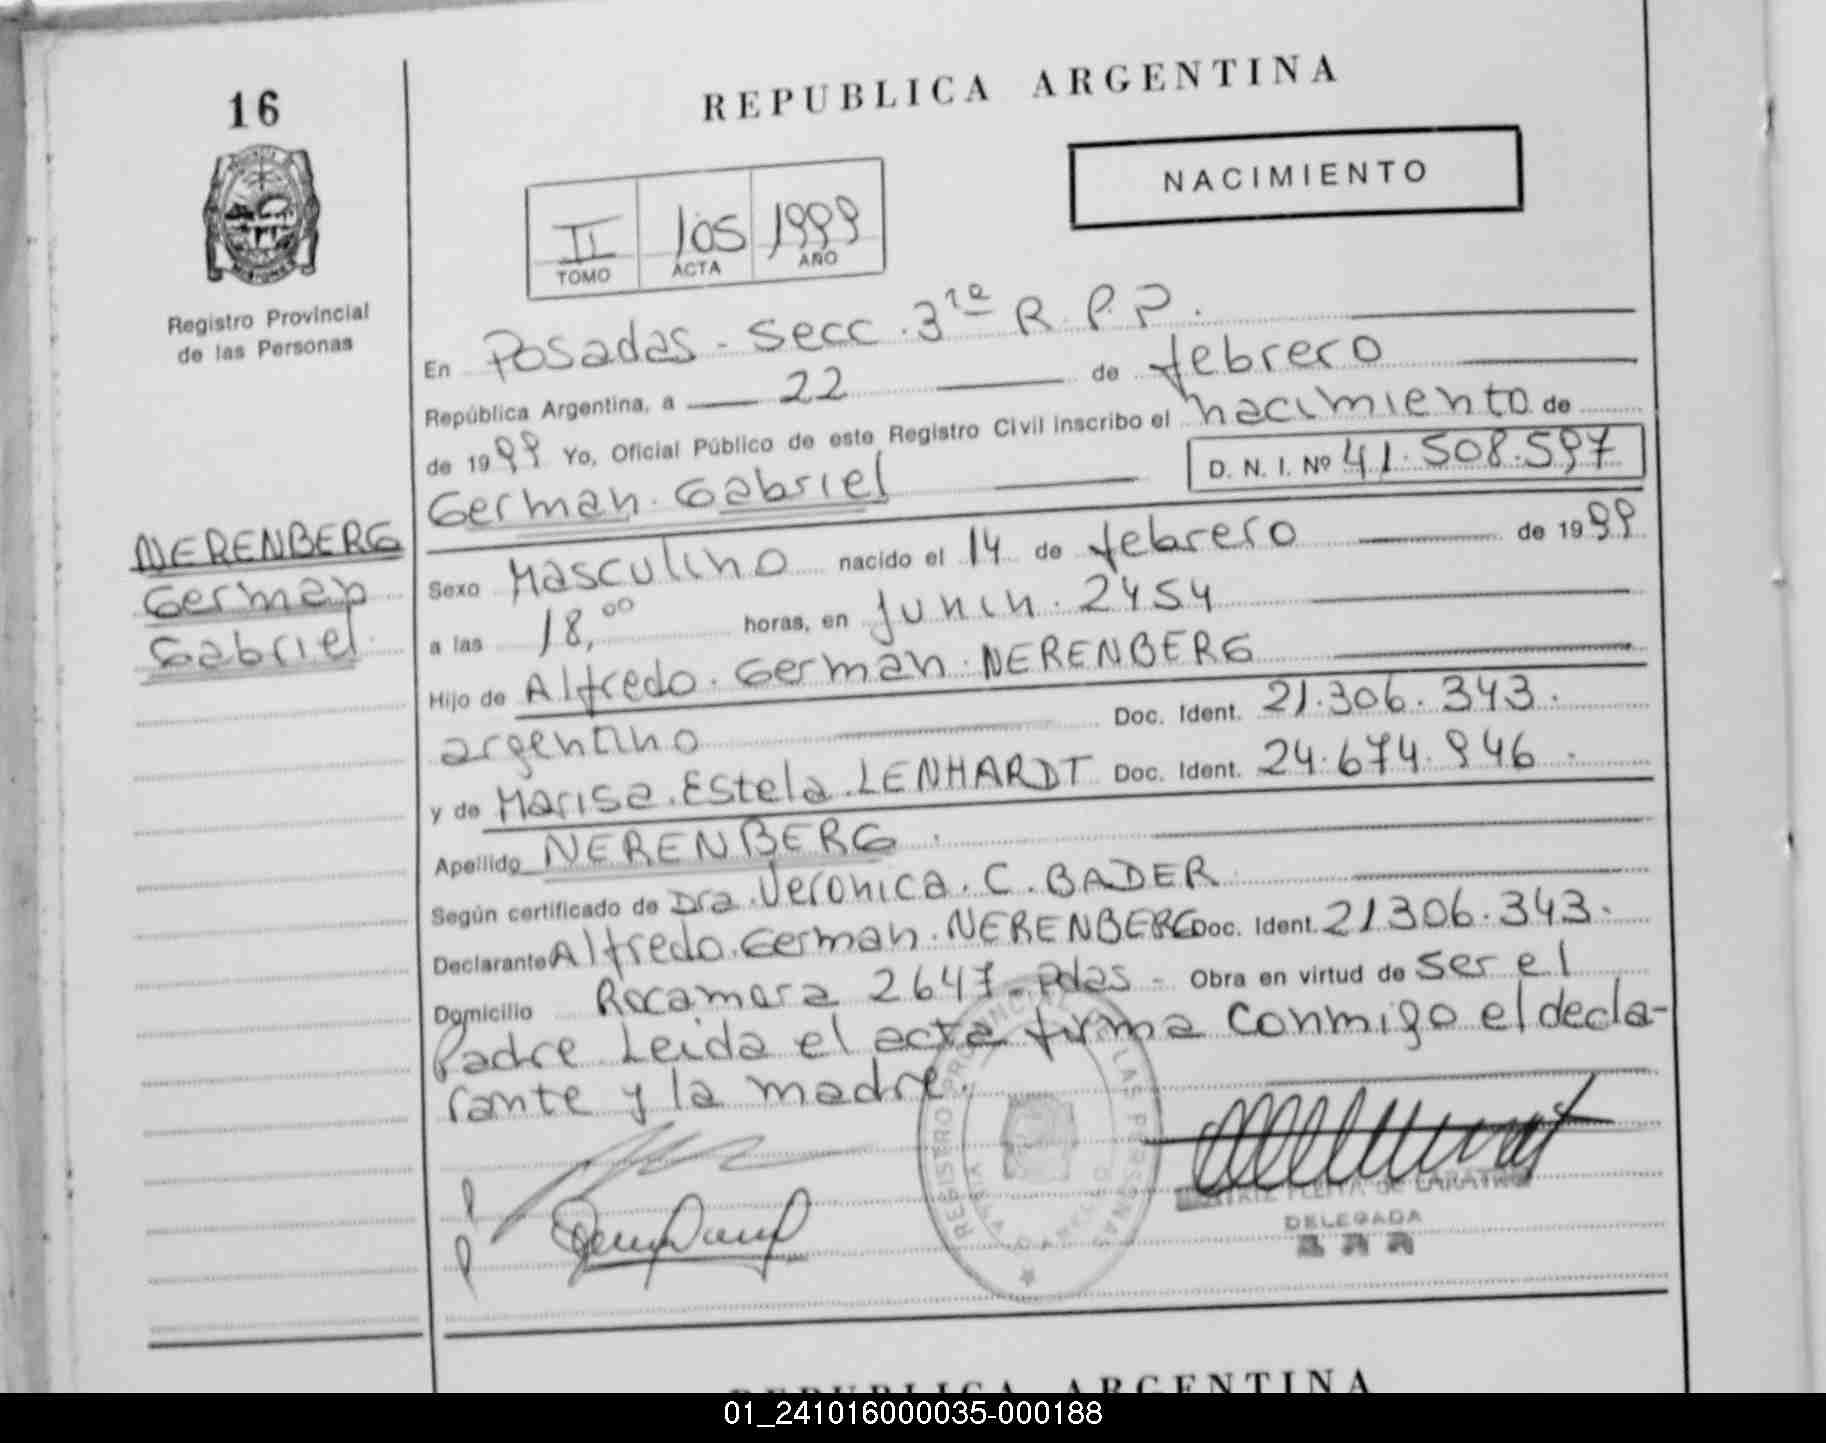 16
REPUBLICA ARGENTINA
NACIMIENTO
II 105 1999
TOMO ACTA AÑO
Registro Provincial
de las Personas
En Posadas - Secc. 3ra R. P. P.
República Argentina, a 22 de febrero
de 1999 Yo, Oficial Público de este Registro Civil inscribo el nacimiento de
German Gabriel D. N. I. Nº 41.508.597
NERENBERG
German
Gabriel
Sexo Masculino nacido el 14 de febrero de 1999
a las 18,00 horas, en Junin. 2454
Hijo de Alfredo. German. NERENBERG
argentino Doc. Ident. 21.306.343.
y de Marisa. Estela. LENHARDT Doc. Ident. 24.674.946.
Apellido NERENBERG.
Según certificado de Dra. Veronica. C. BADER
Declarante Alfredo. German. NERENBERG Doc. Ident. 21306.343.
Domicilio Rocamora 2647 - Pdas - Obra en virtud de ser el
Padre Leida el acta firma conmigo el decla-
rante y la madre.
REGISTRO PROVINCIAL LAS PERSONAS
DELEGADA
REPUBLICA ARGENTINA
01_241016000035-000188